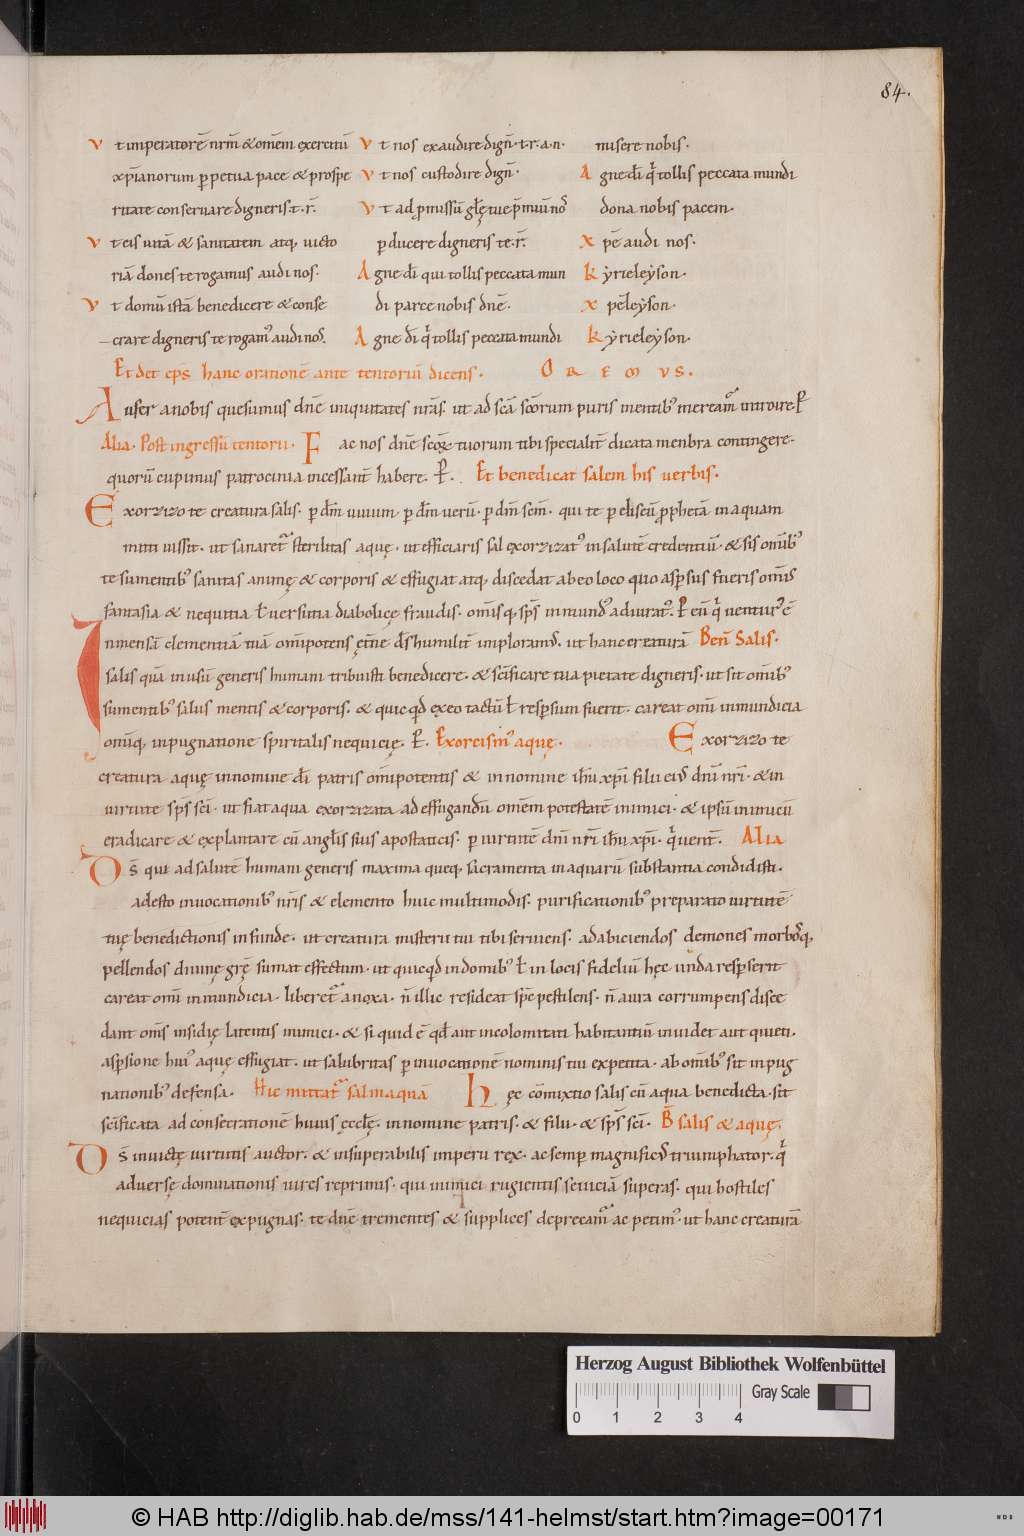 84.
Vt imperatorē nrm̄ & om̄em exercitū
xp̄ianorum perpetua pace & prospe
ritate conseruare digneris. t. r̄.
Vt eis uitā & sanitatem atq; uicto
riā dones te rogamus audi nos.
Vt domū istā benedicere & conse
crare digneris te rogam᷒ audi nos.
Vt nos exaudire dign̄. t. r. a. n.
Vt nos custodire dign̄.
Vt ad p̄missū gl̄ę tuę p̄miū nos
perducere digneris te. r̄.
Agne dī qui tollis peccata mun
di parce nobis dn̄e.
Agne dī q̄ tollis peccata mundi
misere nobis.
Agne dī q̄ tollis peccata mundi
dona nobis pacem.
Xpē audi nos.
Kyrieleyson.
Xpēleyson.
Kyrieleyson.
Et det ep̄s hanc orationē ante tentoriū dicens. OREMUS.
Aufer a nobis quesumus dn̄e iniquitates nr̄as. ut ad scā scōrum puris mentib; mereamur introire. P
Alia. Post ingressū tentorii. Fac nos dn̄e scōr tuorum tibi specialit̄ dicata menbra contingere.
quorū cupimus patrocinia incessant̄ habere. P. Et benedicat salem his uerbis.
Exorzizo te creatura salis. per dm̄ uiuum. per dm̄ uerū. per dm̄ scm̄. qui te per eliseū pphetā in aquam
mitti iussit. ut sanaret᷒ sterilitas aquę. ut efficiaris sal exorzizat᷒ in salutē credentiū. & sis om̄ib;
te sumentib; sanitas animę & corporis & effugiat atq; discedat ab eo loco quo aspersus fueris om̄is
fantasia & nequitia ł uersutia diabolicę fraudis. om̄isq; sp̄s inmundus adiurat᷒. P eū q̄ uentur᷒ ē
Inmensā clementiā tuā om̄ipotens ęt̄ne ds̄ humilit̄ imploram᷒. ut hanc creaturā Ben̄ Salis.
salis quā in usū generis humani tribuisti benedicere. & scīficare tua pietate digneris. ut sit om̄ib;
sumentib; salus mentis & corporis. & quicqd ex eo tactū ł respersum fuerit. careat om̄i inmundicia
om̄iq; inpugnatione spiritalis nequicię. P. Exorcism᷒ aquę. Exorzizo te
creatura aquę in nomine dī patris om̄ipotentis & in nomine ihū xpī filii ei᷒ dn̄i nrī. & in
uirtute sp̄s scī. ut fiat aqua exorzizata ad effugandū om̄em potestatē inimici. & ipsū inimicū
eradicare & explantare cū angl̄is suis apostaticis. per uirtutē dn̄i nrī ihū xpī. q̄ uent̄. Alia
Ds̄ qui ad salutē humani generis maxima queq; sacramenta in aquarū substantia condidisti.
adesto inuocationib; nr̄is & elemento huic multimodis. purificationib; preparato uirtutē
tuę benedictionis infunde. ut creatura misterii tui tibi seruiens. ad abiciendos demones morbosq;
pellendos diuinę gr̄ę sumat effectum. ut quicqd in domib; ł in locis fideliū hęc unda resperserit
careat om̄i inmundicia. liberet᷒ a noxa. n̄ illic resideat sp̄c pestilens. n̄ aura corrumpens disce
dant om̄s insidię latentis inimici. & si quid ē qd̄ aut incolomitati habitantiū inuidet aut quieti.
aspersione hui᷒ aquę effugiat. ut salubritas per inuocationē nominis tui expetita. ab om̄ib; sit inpug
nationib; defensa. Hic mittat᷒ sal in aquā Hęc cōmixtio salis cū aqua benedicta. sit
scīficata ad consecrationē huius ęccłę. in nomine patris. & filii. & sp̄s scī. B̄ salis & aquę.
Ds̄ inuictę uirtutis auctor. & insuperabilis imperii rex. ac semper magnific᷒ triumphator. q̄
aduersę dominationis uires reprimis. qui inimici rugientis seuiciā superas. qui hostiles
nequicias potent̄ expugnas. te dn̄e trementes & supplices deprecam᷒ ac petim᷒. ut hanc creaturā
Herzog August Bibliothek Wolfenbüttel
0 1 2 3 4 Gray Scale
© HAB http://diglib.hab.de/mss/141-helmst/start.htm?image=00171